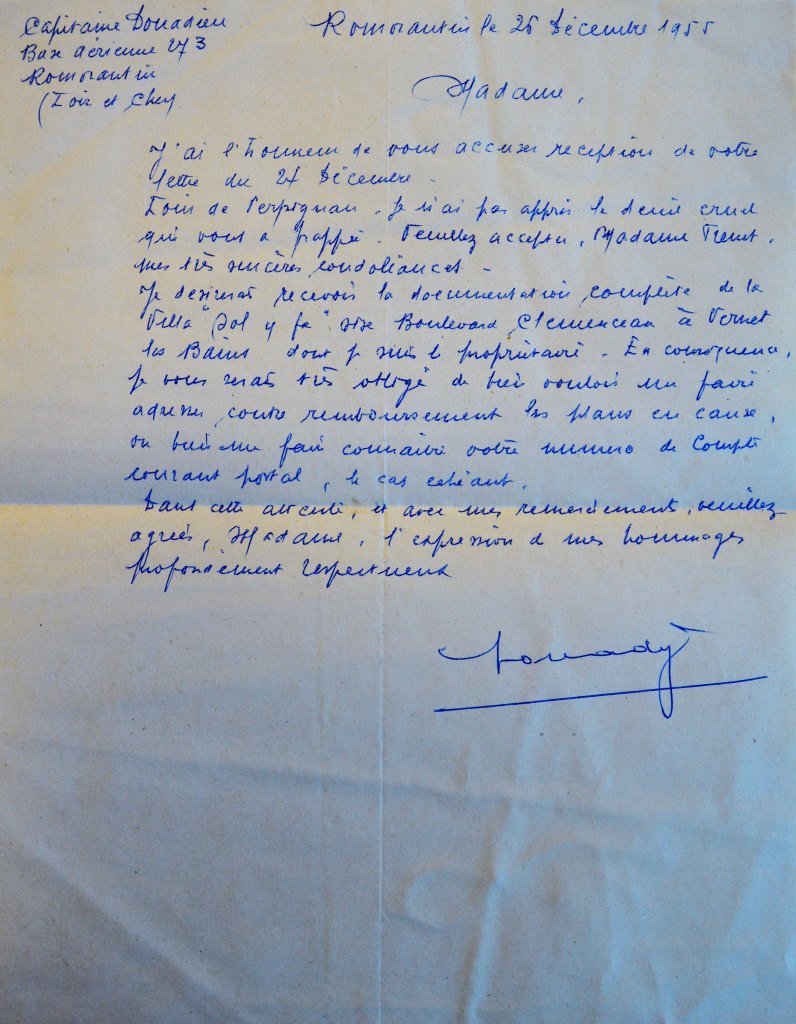 Capitaine Donadieu
Base Aérienne 273
Romorantin
(Loir et Cher
Romorantin le 26 Décembre 1955
Madame,
J'ai l'honneur de vous accuser reception de votre
lettre du 21 Décembre.
Loin de Perpignan. Je n'ai pas appris le deuil cruel
qui vous a frappé. Veuillez accepter, Madame Trenet,
mes très sincères condoléances.
Je desirerais recevoir la documentation complète de la
Villa "Sol y fa" sise Boulevard Clemenceau à Vernet
les Bains dont je suis le propriétaire. En conséquence,
je vous serais très obligé de bien vouloir me faire
adresser contre remboursement les plans en cause,
ou bien me faire connaitre votre numero de Compte
courant postal, le cas echéant.
Dans cette attente, et avec mes remerciement, veuillez
agréer, Madame, l'expression de mes hommages
profondément respectueux